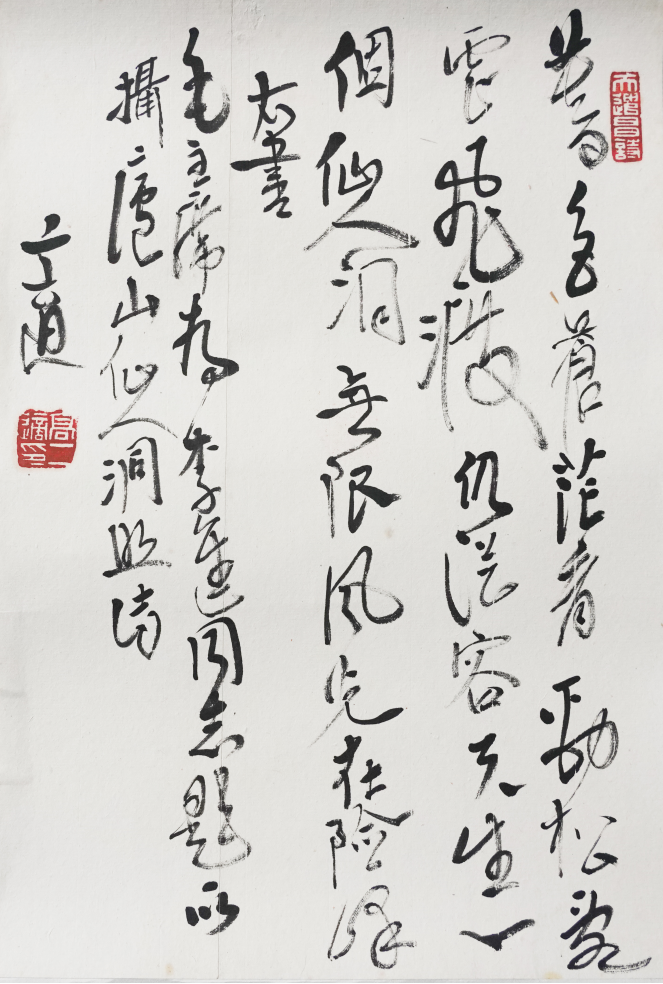 天遣昌詩
暮色蒼茫看勁松亂
雲飛渡仍從容天生一
個仙人洞無限風光在險峰
右書
毛主席為李進同志題所
攝廬山仙人洞照詩
二適
高二適印